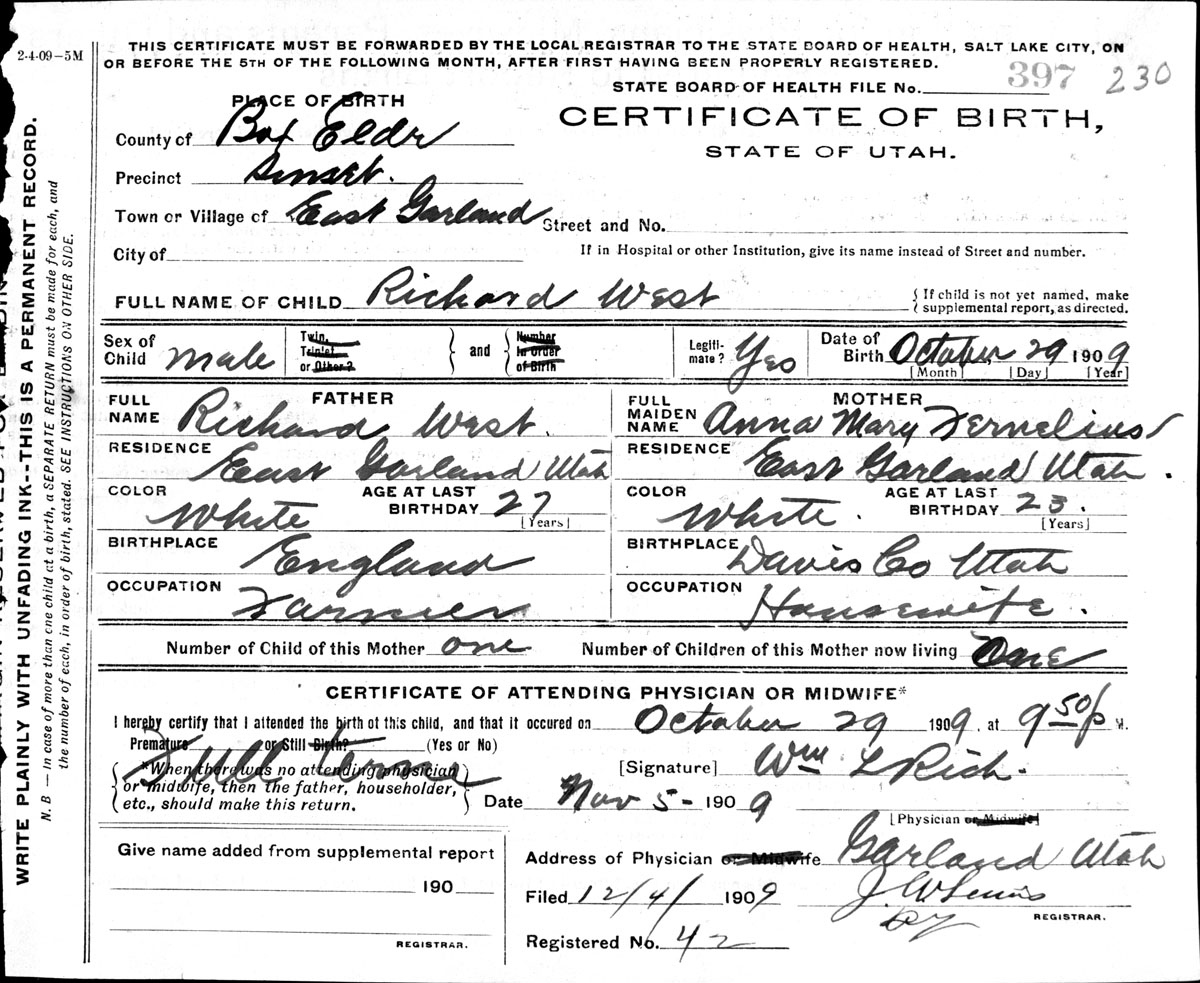 2-4-09—5M
THIS CERTIFICATE MUST BE FORWARDED BY THE LOCAL REGISTRAR TO THE STATE BOARD OF HEALTH, SALT LAKE CITY, ON
OR BEFORE THE 5TH OF THE FOLLOWING MONTH, AFTER FIRST HAVING BEEN PROPERLY REGISTERED.
STATE BOARD OF HEALTH FILE No. 397 230
PLACE OF BIRTH
CERTIFICATE OF BIRTH,
STATE OF UTAH.
County of Box Eldr
Precinct Sunset.
Town or Village of East Garland Street and No.
City of If in Hospital or other Institution, give its name instead of Street and number.
FULL NAME OF CHILD Richard West { If child is not yet named, make
supplemental report, as directed.
Sex of Child Male Twin, Triplet or Other? } and { Number in Order of Birth Legiti- mate? Yes Date of Birth October 29 1909
[Month] [Day] [Year]
FATHER MOTHER
FULL NAME Richard West. FULL MAIDEN NAME Anna Mary Fernelius
RESIDENCE East Garland Utah RESIDENCE East Garland Utah.
COLOR White AGE AT LAST BIRTHDAY 27 [Years] COLOR White. AGE AT LAST BIRTHDAY 23. [Years]
BIRTHPLACE England BIRTHPLACE Davis Co Utah
OCCUPATION Farmer OCCUPATION Housewife.
Number of Child of this Mother one Number of Children of this Mother now living One
CERTIFICATE OF ATTENDING PHYSICIAN OR MIDWIFE*
I hereby certify that I attended the birth of this child, and that it occured on October 29 1909, at 9 50/P M.
Premature or Still Birth? (Yes or No)
Full Term
[Signature] Wm L Rich.
{ *When there was no attending physician
or midwife, then the father, householder,
etc., should make this return. }
Date Nov 5 - 1909
[Physician or Midwife]
Give name added from supplemental report
190
REGISTRAR.
Address of Physician or Midwife Garland Utah
Filed 12/4/ 1909 J. W. Lewis
REGISTRAR.
Registered No. 42
WRITE PLAINLY WITH UNFADING INK--THIS IS A PERMANENT RECORD.
N. B — In case of more than one child at a birth, a SEPARATE RETURN must be made for each, and
the number of each, in order of birth, stated. SEE INSTRUCTIONS ON OTHER SIDE.